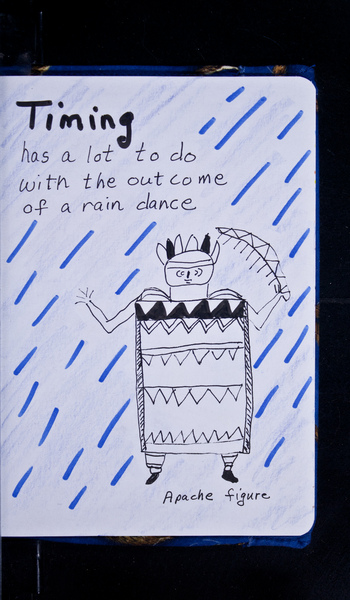 Timing
has a lot to do
with the outcome
of a rain dance
Apache figure